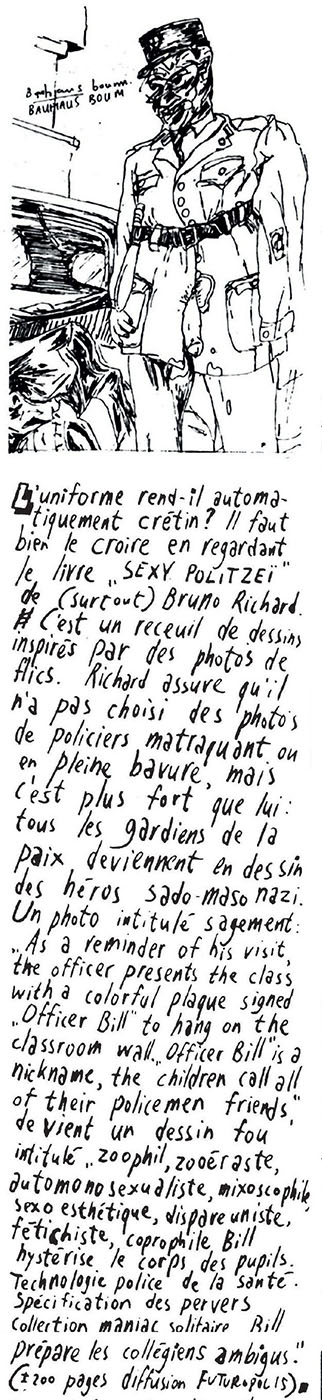 Bauhaus boum.
BAUHAUS BOUM
L'uniforme rend-il automa-
tiquement crétin? Il faut
bien le croire en regardant
le livre „SEXY POLITZEÏ"
de (surtout) Bruno Richard.
# C'est un receuil de dessins
inspirés par des photos de
flics. Richard assure qu'il
n'a pas choisi des photos
de policiers matraquant ou
en pleine bavure, mais
c'est plus fort que lui:
tous les gardiens de la
paix deviennent en dessin
des héros sado-maso nazi.
Un photo intitulé sagement:
„As a reminder of his visit,
the officer presents the class
with a colorful plaque signed
„Officer Bill" to hang on the
classroom wall. „Officer Bill" is a
nickname, the children call all
of their policemen friends"
devient un dessin fou
intitulé „zoophil, zooéraste,
automonosexualiste, mixoscophile,
sexo esthétique, dispareuniste,
fétichiste, coprophile Bill
hystérise le corps des pupils.
Technologie police de la santé.
Spécification des pervers
Collection maniac solitaire Bill
prépare les collégiens ambigus."
(±200 pages diffusion FUTUROPOLIS).